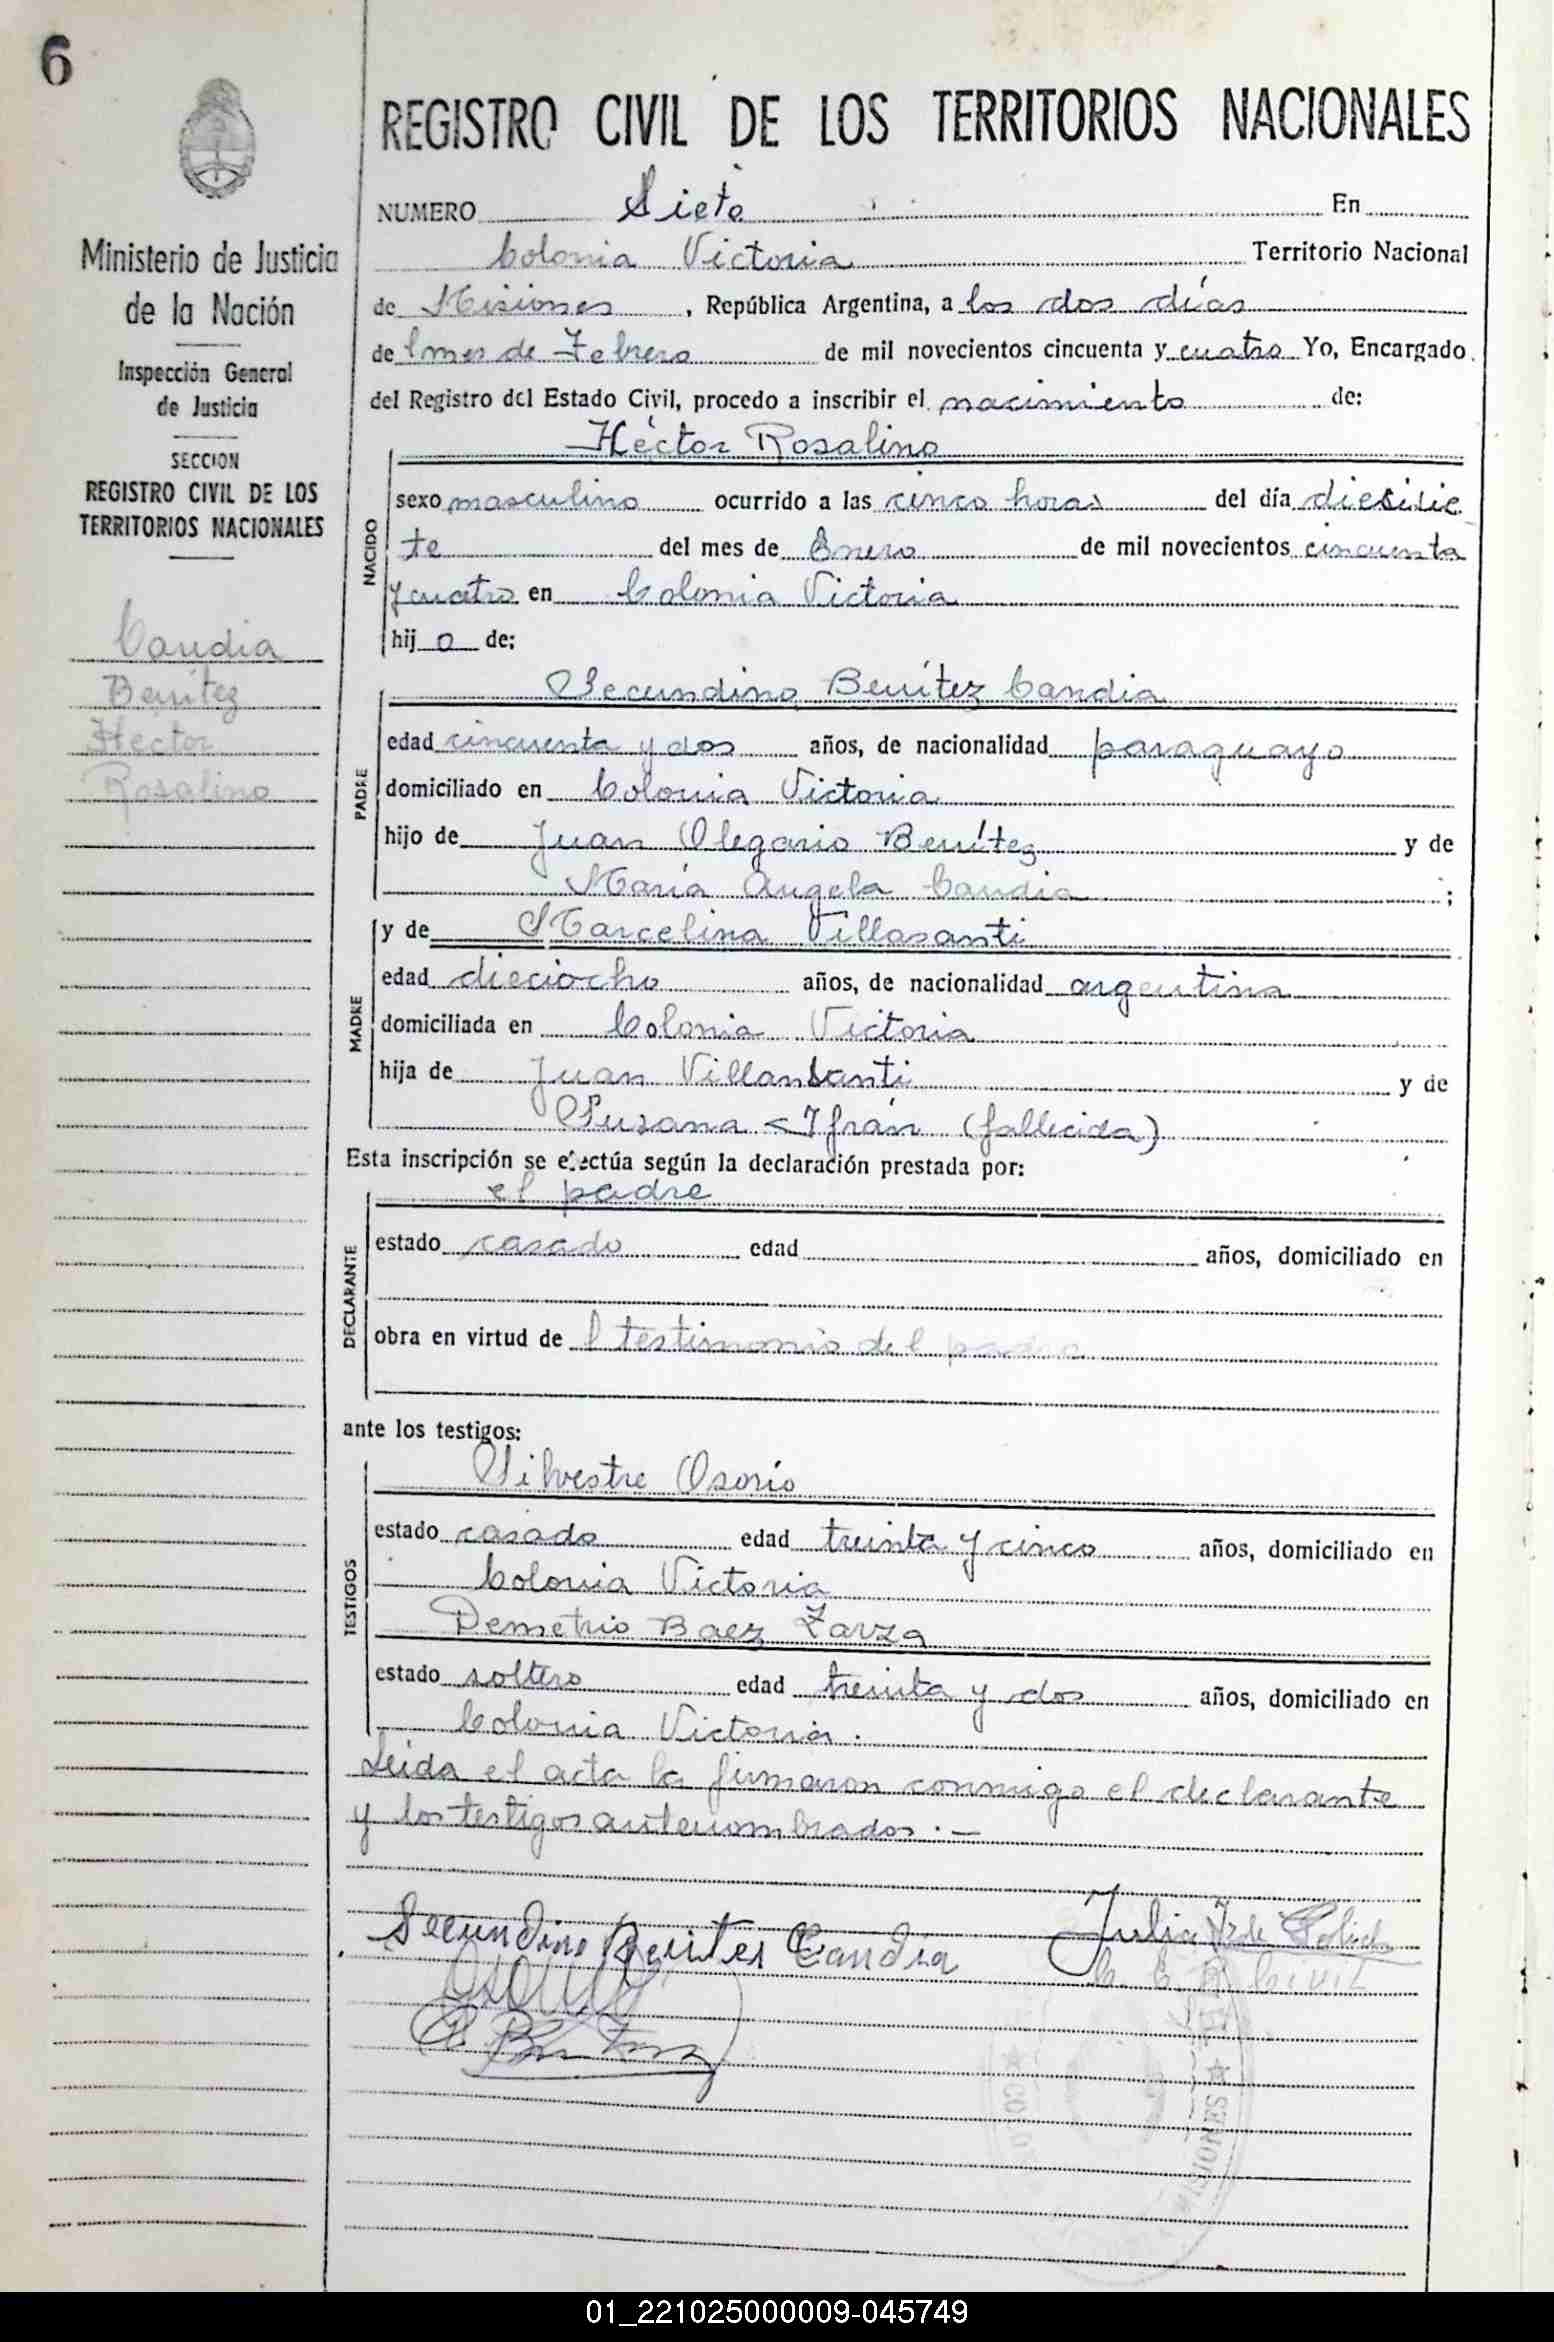 6
REGISTRO CIVIL DE LOS TERRITORIOS NACIONALES
NUMERO Siete En
Colonia Victoria Territorio Nacional
de Misiones , República Argentina, a los dos días
de l mes de Febrero de mil novecientos cincuenta y cuatro Yo, Encargado
del Registro del Estado Civil, procedo a inscribir el nacimiento de:
Ministerio de Justicia
de la Nación
Inspección General
de Justicia
SECCION
REGISTRO CIVIL DE LOS
TERRITORIOS NACIONALES
Candia
Benítez
Héctor
Rosalino
NACIDO
Héctor Rosalino
sexo masculino ocurrido a las cinco horas del día diesisie
te del mes de Enero de mil novecientos cincuenta
y cuatro en Colonia Victoria
hij o de:
PADRE
Secundino Benítez Candia
edad cincuenta y dos años, de nacionalidad paraguayo
domiciliado en Colonia Victoria
hijo de Juan Olegario Benítez y de
María Angela Candia ;
MADRE
y de Marcelina Villasanti
edad dieciocho años, de nacionalidad argentina
domiciliada en Colonia Victoria
hija de Juan Villansanti y de
Susana Ifrán (fallecida)
Esta inscripción se efectúa según la declaración prestada por:
DECLARANTE
el padre
estado casado edad años, domiciliado en
obra en virtud de l testimonio del padre
ante los testigos:
TESTIGOS
Silvestre Osorio
estado casado edad treinta y cinco años, domiciliado en
Colonia Victoria
Demetrio Baez Zarza
estado soltero edad treinta y dos años, domiciliado en
Colonia Victoria.
Leida el acta la firmaron conmigo el declarante
y los testigos antenombrados.—
Secundino Benites Candia Julia
01_221025000009-045749